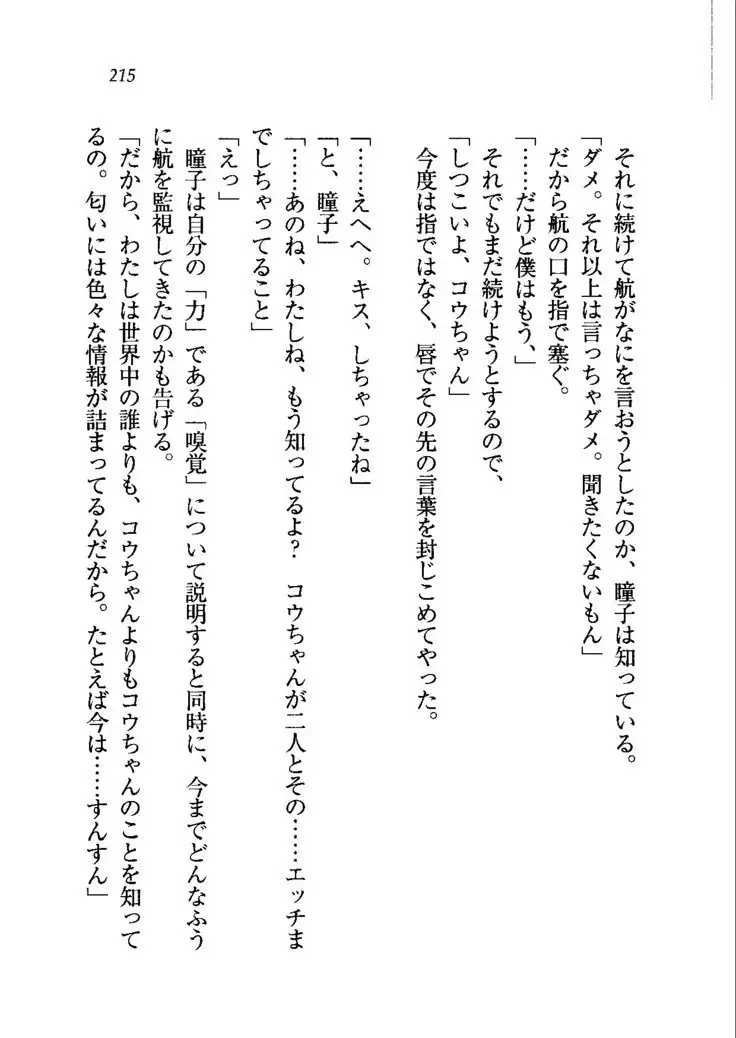 215
それに続けて航がなにを言おうとしたのか、瞳子は知っている。
「ダメ。それ以上は言っちゃダメ。聞きたくないもん」
だから航の口を指で塞ぐ。
「……だけど僕はもう、」
それでもまだ続けようとするので、
「しつこいよ、コウちゃん」
今度は指ではなく、唇でその先の言葉を封じこめてやった。
「……えへへ。キス、しちゃったね」
「と、瞳子」
「……あのね、わたしね、もう知ってるよ？　コウちゃんが二人とその……エッチま
でしちゃってること」
「えっ」
瞳子は自分の「力」である「嗅覚」について説明すると同時に、今までどんなふう
に航を監視してきたのかも告げる。
「だから、わたしは世界中の誰よりも、コウちゃんよりもコウちゃんのことを知って
るの。匂いには色々な情報が詰まってるんだから。たとえば今は……すんすん」